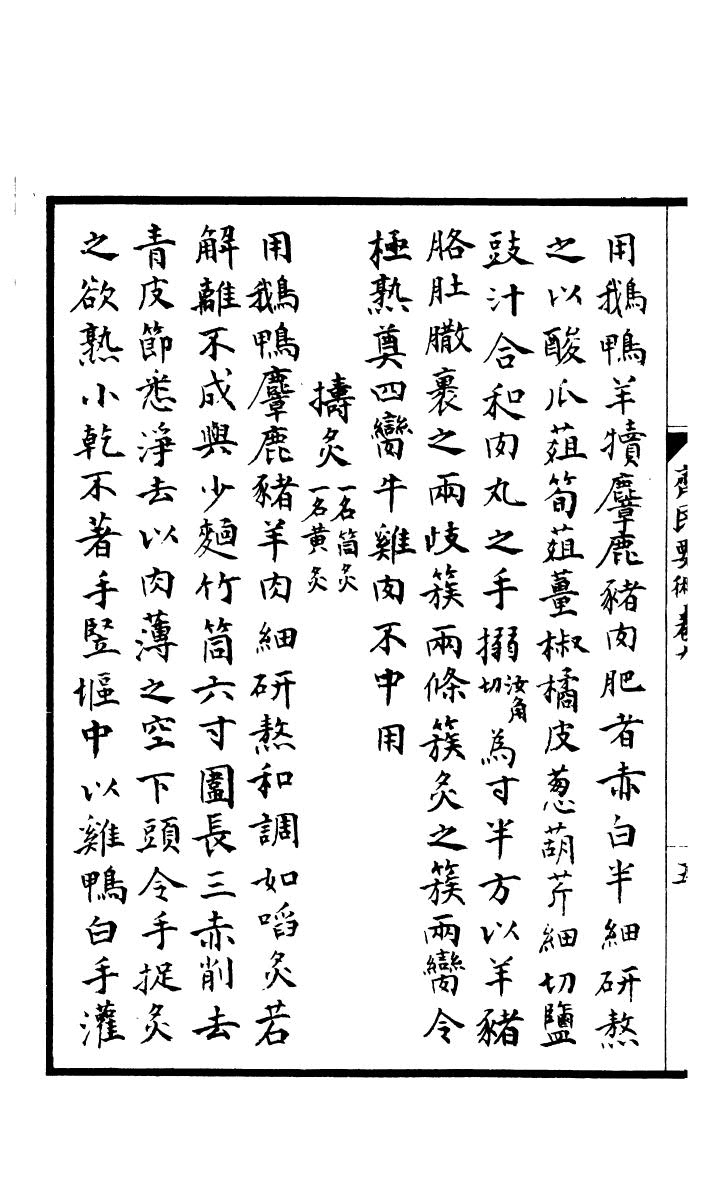 用鵝鴨羊犢麞鹿豬肉肥者赤白半細研熬
之以酸瓜葅筍葅薑椒橘皮葱葫芹細切鹽
豉汁合和肉丸之手搦汝角切為寸半方以羊豬
胳肚䐿裹之兩歧簇兩條簇炙之簇兩臠令
極熟奠四臠牛雞肉不中用
擣炙一名筒炙一名黃炙
用鵝鴨麞鹿豬羊肉細研熬和調如㗖炙若
解離不成與少麵竹筒六寸圍長三赤削去
青皮節悉淨去以肉薄之空下頭令手捉炙
之欲熟小乾不著手豎堰中以雞鴨白手灌
齊民要術 卷九
五